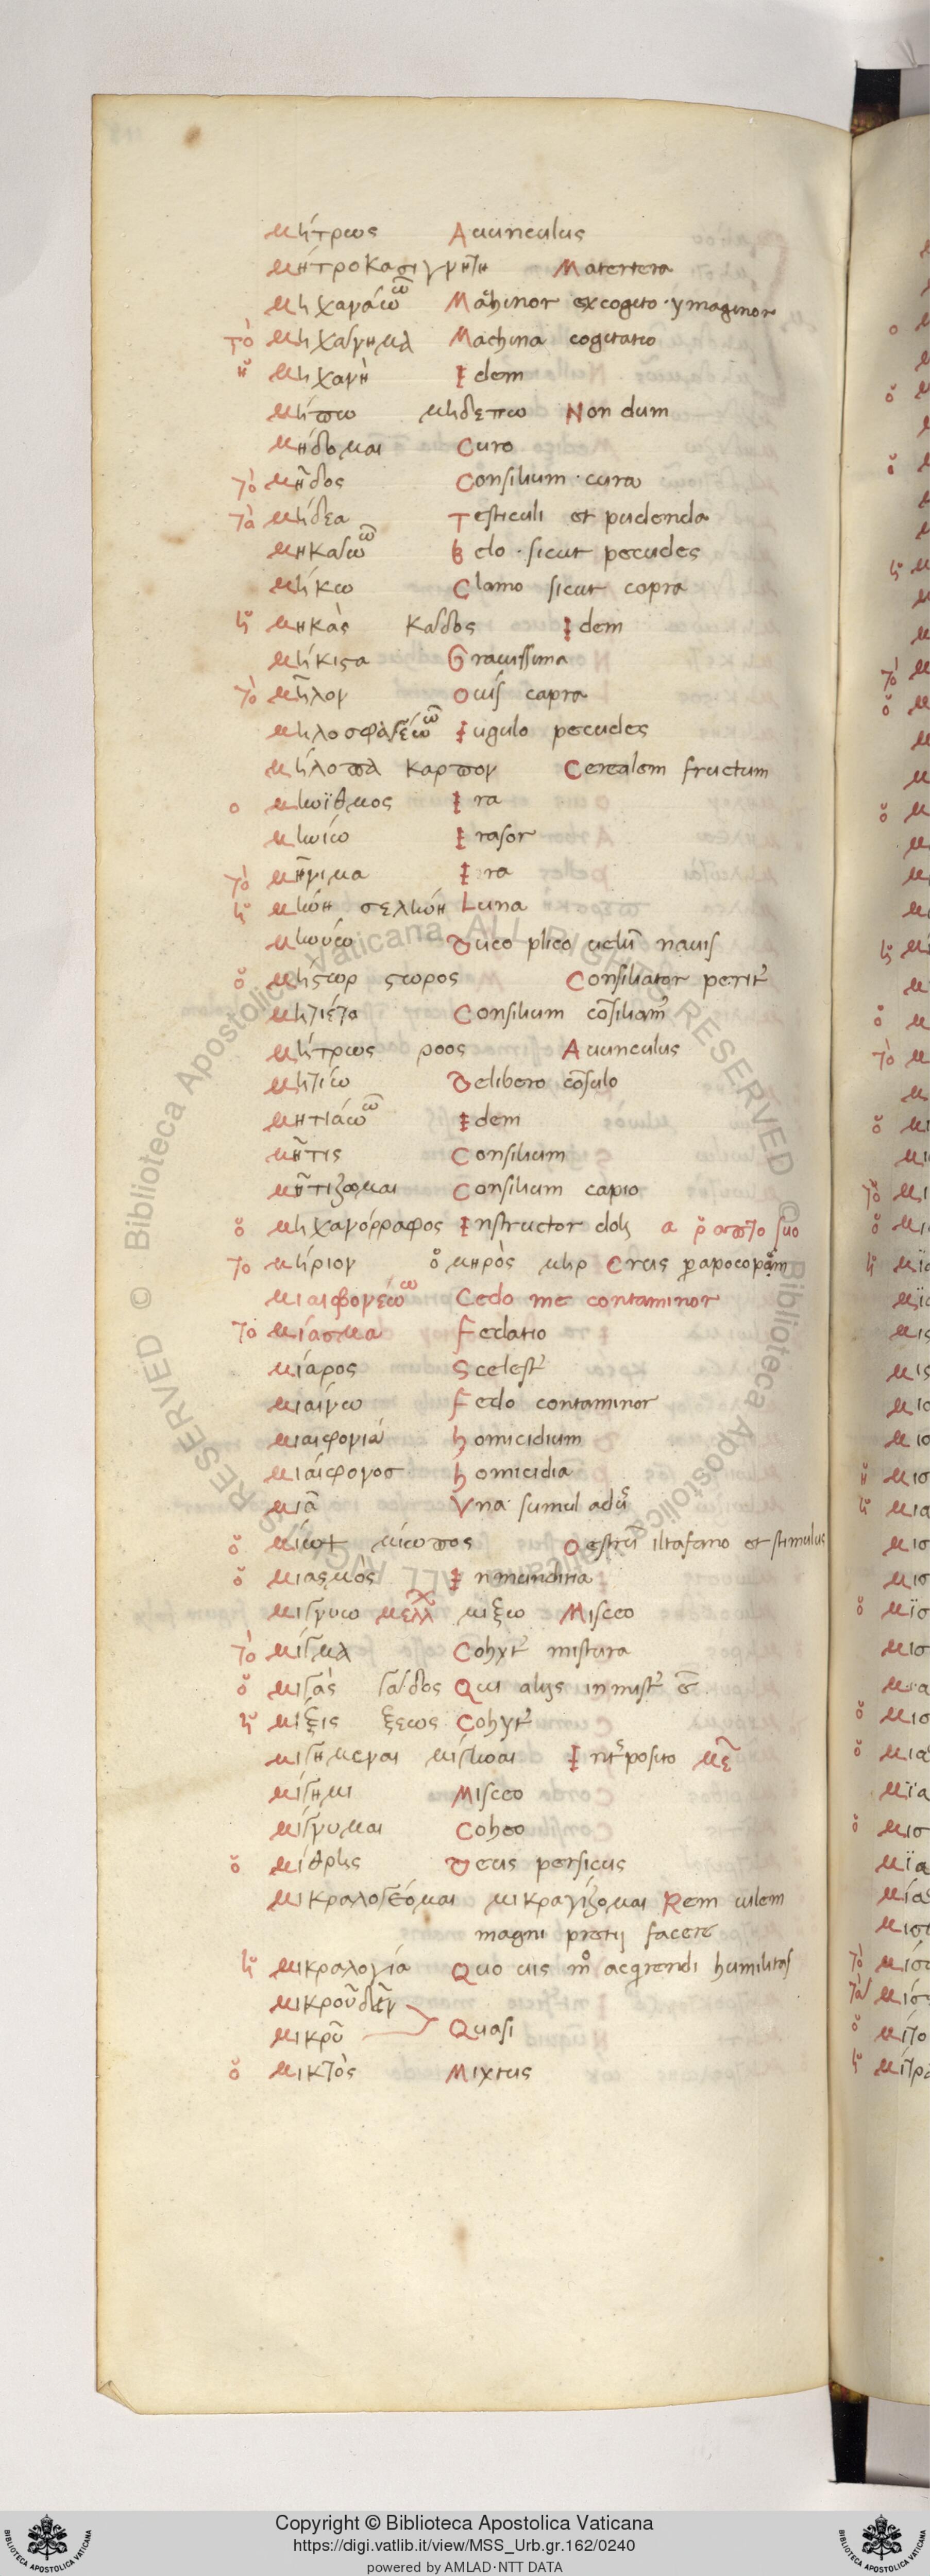 μήτρως Auunculus
μητροκασιγνήτη Matertera
μηχανάω ῶ Machinor excogito · ymaginor
τὸ μηχάνημα Machina cogitatio
ἡ μηχανὴ Idem
μήπω μηδεπω Non dum
μήδομαι Curo
τὸ μῆδος Consilium · cura
τὰ μήδεα Testiculi et pudenda
μηκάω ῶ Belo · sicut pecudes
μήκω Clamo sicut capra
ἡ μηκὰς κάδος Idem
μήκιστα Grauissima
τὸ μῆλον Ouis capra
μηλοσφαγέω ῶ Iugulo pecudes
μήλοπα καρπον Cerealem fructum
ο μηνϊθμος Ira
μηνίω Irasor
τὸ μήνιμα Ira
ἡ μήνη σελήνη Luna
μηρύω Duco plico uelū nauis
ὁ μήστωρ στωρος Consiliator perit᾽
μητιέτα Consilium cōsiliam᾽
μήτρως ροος Auunculus
μητίω Delibero cōsulo
μητιάω ῶ Idem
μῆτις Consilium
μητίζομαι Consilium capio
ὁ μηχανόρραφος Instructor doli a ῥάπτο suo
το μήριον ὁ μηρὸς μηρ Crus p apocopam
μιαιφονέω ῶ Cedo me contaminor
το μίασμα Fedatio
μίαρος Scelest᾽
μιαίνω Fedo contaminor
μιαιφονία homicidium
μιαίφονοσ homicidia
μία Vna simul
ὁ μίωψ μίωπος Oestrū et stimulus
ὁ μιασμὸς Inmundiria
μιγνυω μελλ μιξω Misceo
τὸ μίγμα Cohyt᾽ mistura
ὁ μιγὰς γάδος Qui alijs inmist᾽
ἡ μίξις ξεως Cohyt᾽
μιγήμεναι μιγῆναι
μίγημι Misceo
μίγνυμαι Coheo
ὁ μίθρης Deus persicus
μικραλογέομαι μικραγίζομαι Rem uilem
magni pretij facere
ἡ μικραλογία Quo uis acqrendi humilitas
μικροῦδεῖν
μικρῦ Quasi
ὁ μικτὸς Mixtus
Copyright © Biblioteca Apostolica Vaticana
https://digi.vatlib.it/view/MSS_Urb.gr.162/0240
powered by AMLAD·NTT DATA